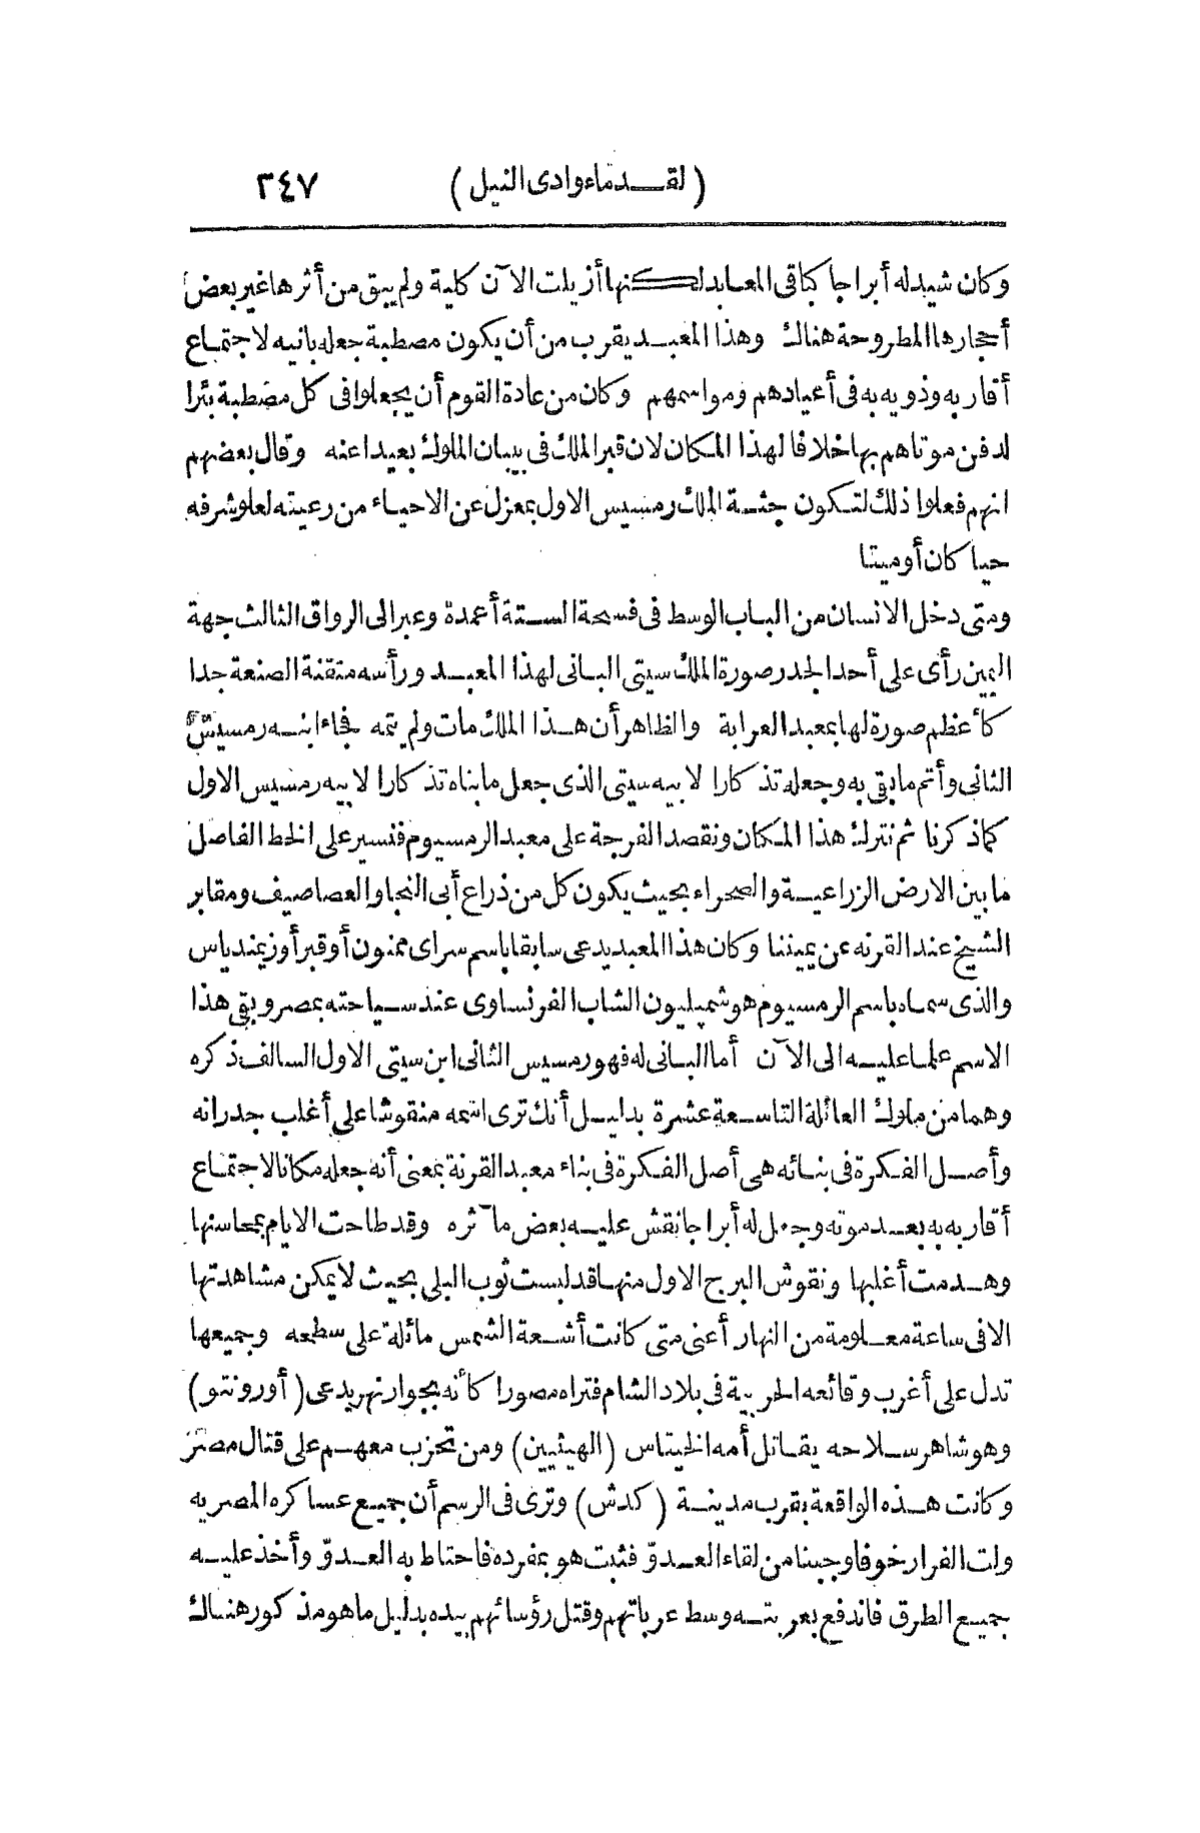 (لقدماء وادى النيل) ٣٤٧
وكان شيد له أبراجا كباقى المعابد لكنها أزيلت الآن كلية ولم يبق من أثرها غير بعض
أحجارها المطروحة هناك وهذا المعبد يقرب من أن يكون مصطبة جعله بانيه لاجتماع
أقاربه وذويه به فى أعيادهم ومواسمهم وكان من عادة القوم أن يجعلوا فى كل مصطبة بئرا
لدفن موتاهم بها خلافا لهذا المكان لان قبر الملك فى بيبان الملوك بعيدا عنه وقال بعضهم
انهم فعلوا ذلك لتكون جثة الملك رمسيس الاول بمعزل عن الاحياء من رعيته لعلو شرفه
حيا كان أوميتا
ومتى دخل الانسان من الباب الوسط فى فسحة الستة أعمدة وعبر الى الرواق الثالث جهة
اليمين رأى على أحد الجدر صورة الملك سيتى البانى لهذا المعبد ورأسه متقنة الصنعة جدا
كأعظم صورة لها بمعبد العرابة والظاهر أن هذا الملك مات ولم يتمه فجاء ابنه رمسيس
الثانى وأتم ما بقى به وجعله تذكارا لابيه سيتى الذى جعل ما بناه تذكارا لابيه رمسيس الاول
كما ذكرنا ثم نترك هذا المكان ونقصد الفرجة على معبد الرمسيوم فنسير على الخط الفاصل
ما بين الارض الزراعية والصحراء بحيث يكون كل من ذراع أبى النجا والعصاصيف ومقابر
الشيخ عند القرنه عن يميننا وكان هذا المعبد يدعى سابقا باسم سراى ممنون أوقبر أوزيمندياس
والذى سماه باسم الرمسيوم هو شمپليون الشاب الفرنساوى عند سياحته بمصر وبقى هذا
الاسم علما عليه الى الآن أما البانى له فهو رمسيس الثانى ابن سيتى الاول السالف ذكره
وهما من ملوك العائلة التاسعة عشرة بدليل أنك ترى اسمه منقوشا على أغلب جدرانه
وأصل الفكرة فى بنائه هى أصل الفكرة فى بناء معبد القرنة بمعنى أنه جعله مكانا لاجتماع
أقاربه به بعد موته وجعل له أبراجا نقش عليه بعض مآثره وقد طاحت الايام بمحاسنها
وهدمت أغلبها ونقوش البرج الاول منها قد لبست ثوب البلى بحيث لا يمكن مشاهدتها
الا فى ساعة معلومة من النهار أعنى متى كانت أشعة الشمس مائلة على سطحه وجميعها
تدل على أغرب وقائعه الحربية فى بلاد الشام فتراه مصورا كأنه بجوار نهر يدعى (أورونتو)
وهو شاهر سلاحه يقاتل أمه الخيتاس (الهيثيين) ومن تحزب معهم على قتال مصر
وكانت هذه الواقعة بقرب مدينة (كدش) وترى فى الرسم أن جميع عساكره المصريه
ولت الفرار خوفا وجبنا من لقاء العدوّ فثبت هو بمفرده فاحتاط به العدوّ وأخذ عليه
جميع الطرق فاندفع بعربته وسط عرباتهم وقتل رؤسائهم بيده بدليل ما هو مذكور هناك